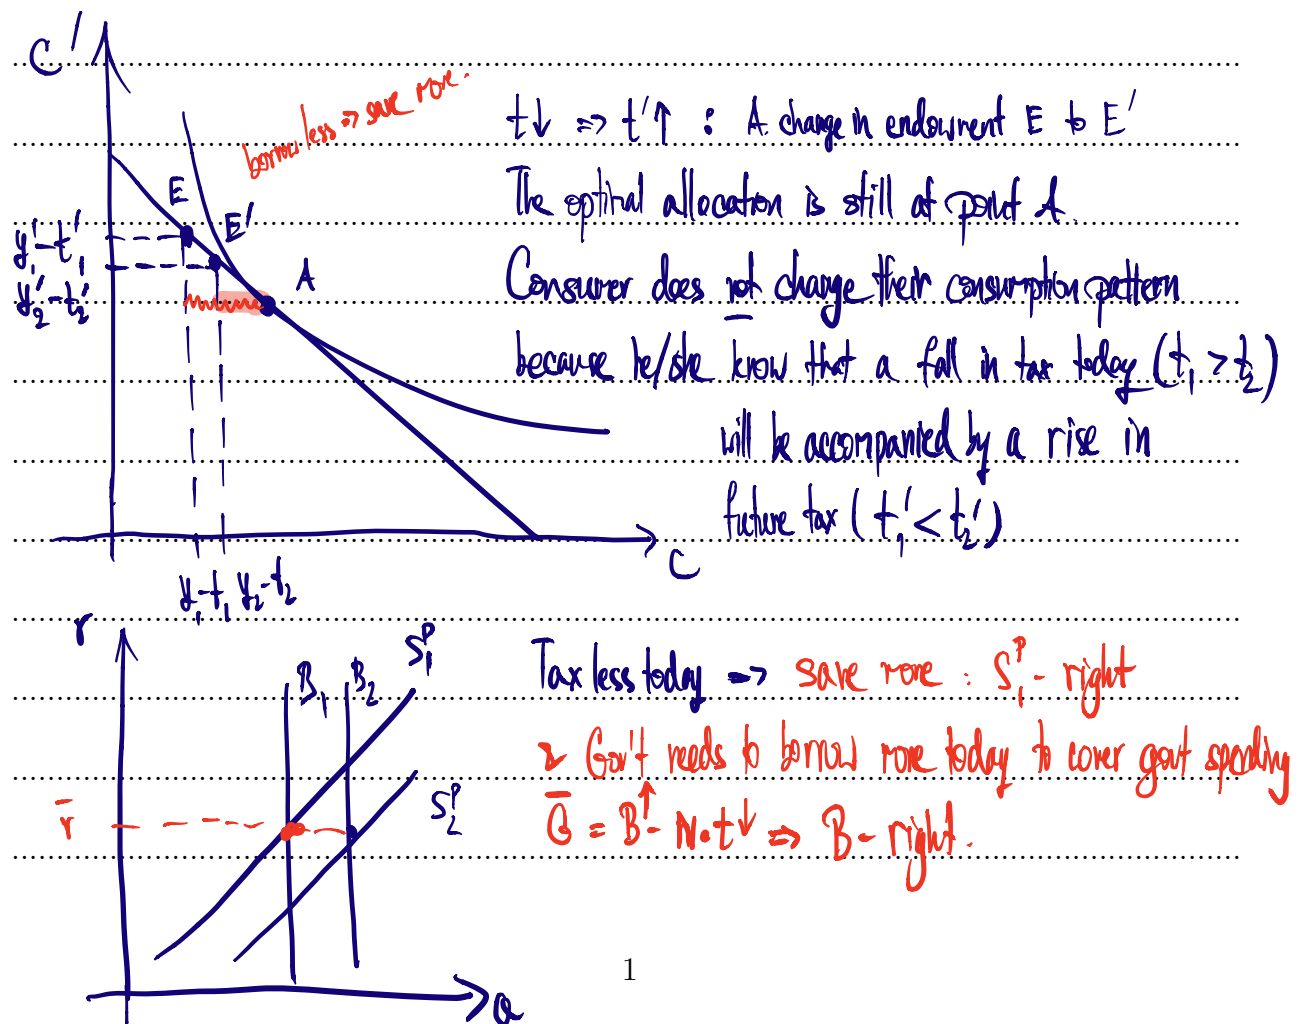 C'
borrow less => save more.
E
E'
A
y₁'-t₁'
y₂'-t₂'
y₁-t₁ y₂-t₂
C
t↓ => t'↑ : A change in endowment E to E'
The optimal allocation is still at point A.
Consumer does not change their consumption pattern
because he/she know that a fall in tax today (t₁ > t₂)
will be accompanied by a rise in
future tax (t₁' < t₂')
r
B₁ B₂
S₁ᴾ
S₂ᴾ
r̄
Q
Tax less today => save more : S₁ᴾ - right
& Gov't needs to borrow more today to cover govt spending
G̅ = B↑ - N.t↓ => B - right.
1